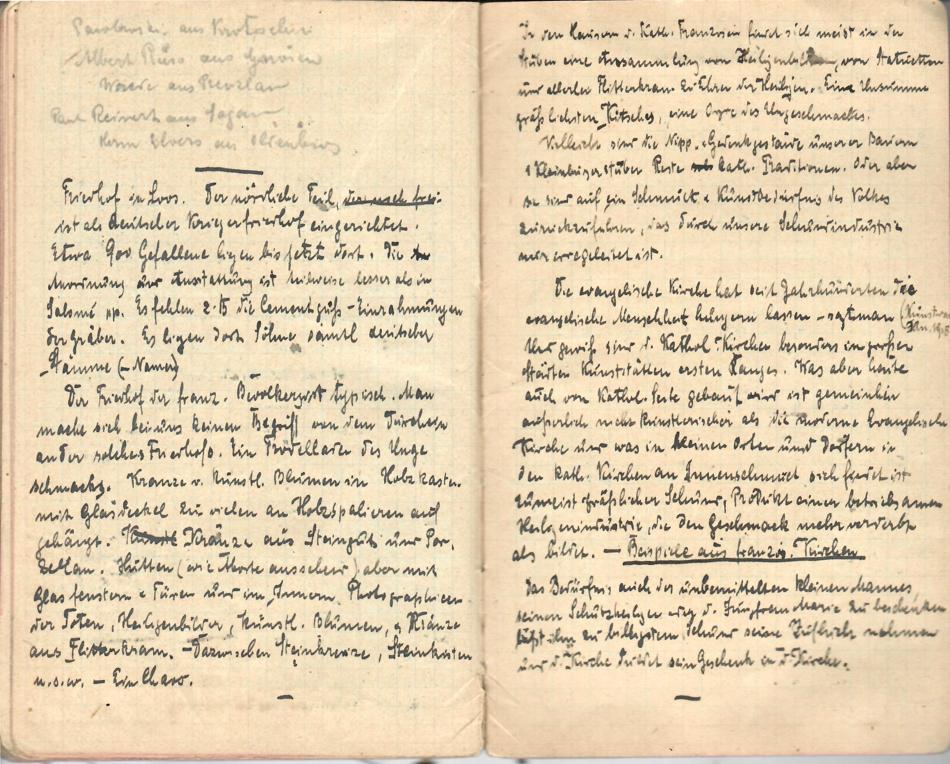 Pawlowski aus Krotoschin
Albert aus
aus Breslau
Paul Reinert aus Sagan
Herm Elvers aus Oldenburg
Friedhof in Loos. Der nördliche Teil, der noch frei
ist als deutscher Kriegerfriedhof eingerichtet.
Etwa 900 Gefallene liegen bis jetzt dort. Die
Anordnung und Ausstattung ist teilweise besser als in
Salomé pp. Es fehlen z.B. die Cementguß-Einrahmungen
der Gräber. Es liegen dort Söhne sämtl deutscher
Stämme (– Namen)
Der Friedhof der franz. Bevölkerg ist typisch. Man
mache sich bei uns keinen Begriff von dem Durchein
ander solches Friedhofs. Ein Trödelladen des Unge
schmacks. Kränze v. künstl. Blumen in Holzkasten
mit Glasdeckel zu vielen an Holzspalieren auf
gehängt. Kränze aus Steingut und Por,
zellan. Hütten (wie Aborte aussehend) aber mit
Glasfenstern & Türen und im Innern Photographieen
der Toten, Heiligenbilder, künstl. Blumen, & Kränze
aus Flitterkram. – Dazwischen Steinkreuze, Steinkisten
u.s.w. – Ein Chaos.
In den Häusern d. Kath. Franzosen findet sich meist in den
Stuben eine Ansammlung von Heiligenbildern, von Statuetten
und allerlei Flitterkram zu Ehren der Heiligen. Eine Unsumme
gräßlichsten Kitsches, eine Orgie des Ungeschmacks.
Vielleicht sind die Nipp. & Gedenkgestände unserer Bauern
& Kleinbürgerstuben Reste kath. Traditionen. Oder aber
sie sind auf ein Schmuck & Kunstbedürfnis des Volkes
zurückzuführen, das durch unsere Schundindustrie
nur irregeleitet ist.
Die evangelische Kirche hat seit Jahrhunderten die
evangelische Menschheit hungern lassen – sagt man (Kunstwart
Und gewiß sind d. Kathol. Kirchen besonders in großen
Städten Kunststätten ersten Ranges. Was aber heute
auch von Kathol. Seite gebaut wird ist gemeinhin
äußerlich nicht künstlerischer als die moderne Evangelische
Kirche und was in kleinen Orten und Dörfern in
den kath. Kirchen an Innenschmuck sich findet ist
zumeist gräßlicher Schund, Produkt einer betriebsamen
Heiligenindustrie, die den Geschmack mehr verderbt
als bildet. – Beispiele aus französ. Kirchen
Das Bedürfnis auch des unbemittelten kleinen Mannes
seinen Schutzheiligen d. Jungfrau Maria zu beschenken
läßt ihn zu billigstem Schund seine Zuflucht nehmen
und d. Kirche duldet sein Geschenk in d. Kirche.